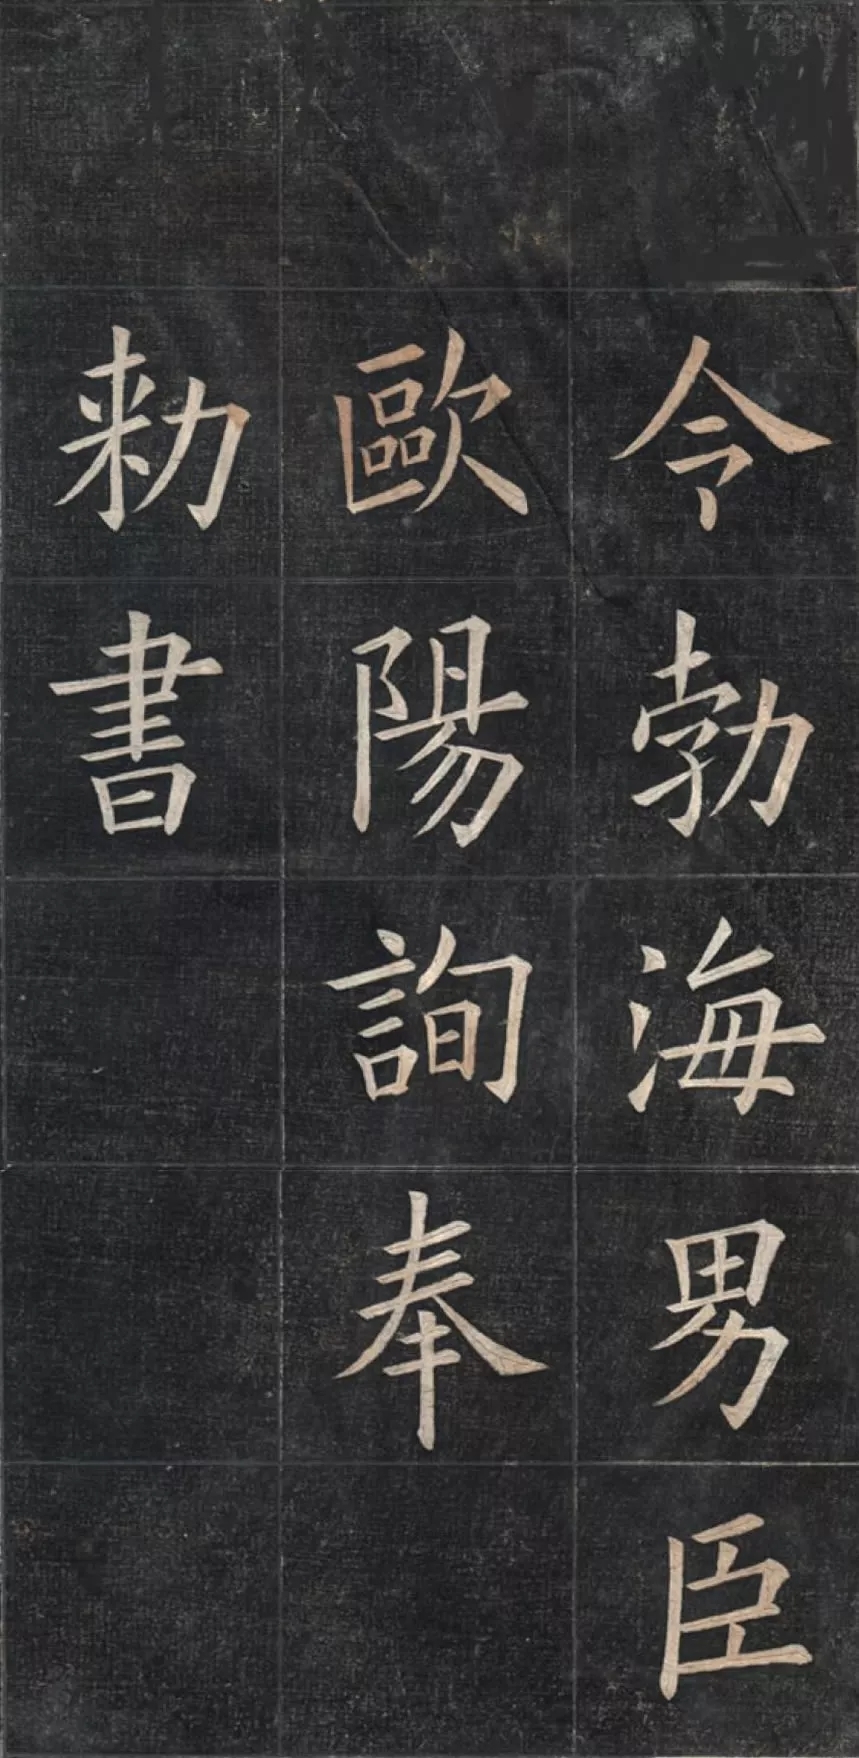 令勃海男臣
歐陽詢奉
勑書